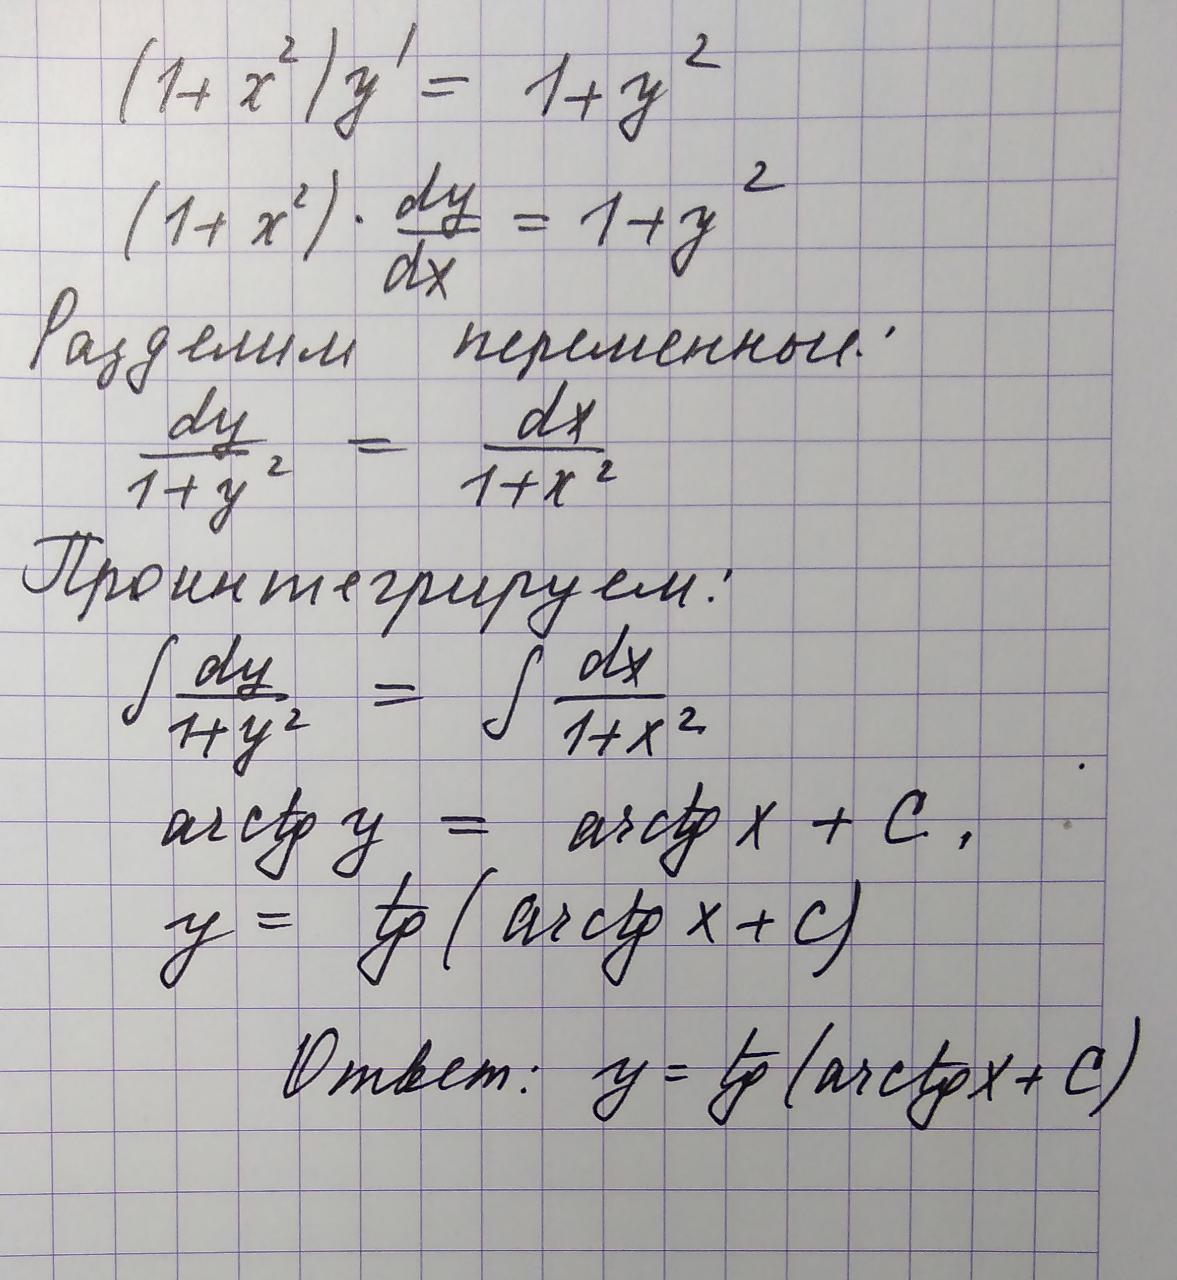 (1+x²)y' = 1+y²
(1+x²)·dy/dx = 1+y²
Разделим переменные:
dy/(1+y²) = dx/(1+x²)
Проинтегрируем:
∫dy/(1+y²) = ∫dx/(1+x²)
arctg y = arctg x + C,
y = tg(arctg x + C)
Ответ: y = tg(arctg x + C)